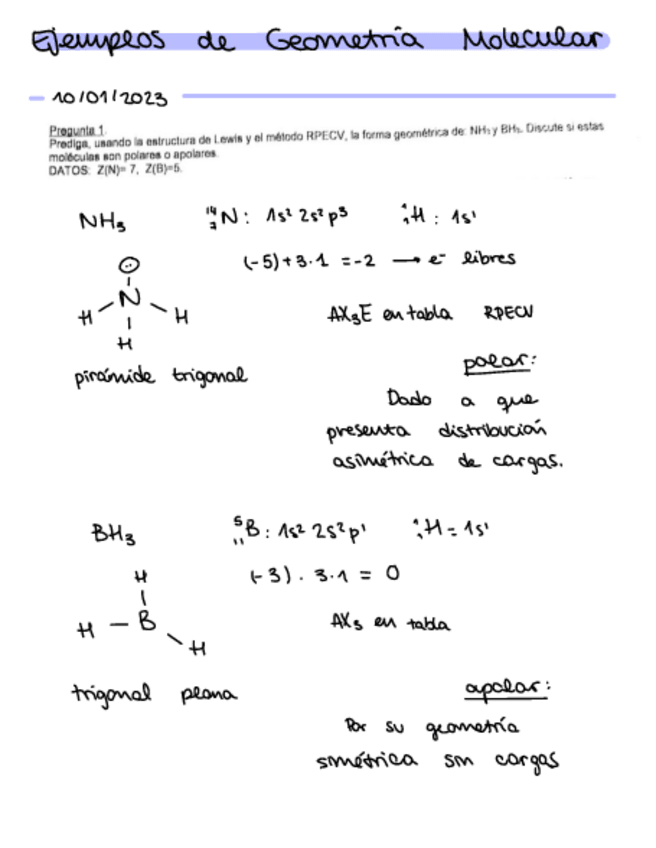 Ejemplos de Geometría Molecular
10/01/2023
Pregunta 1.
Prediga, usando la estructura de Lewis y el método RPECV, la forma geométrica de: NH₃ y BH₃. Discute si estas
moléculas son polares o apolares.
DATOS: Z(N)= 7, Z(B)=5.
NH₃ ¹⁴₇N: 1s² 2s² p³ ¹₁H : 1s¹
(-5)+3·1 = -2 → e⁻ libres
N
H H
H
AX₃E en tabla RPECV
pirámide trigonal
polar:
Dado a que
presenta distribución
asimétrica de cargas.
BH₃ ⁵₁₁B: 1s² 2s² p¹ ¹₁H = 1s¹
H
(-3) · 3·1 = 0
H — B
H
AX₃ en tabla
trigonal plana
apolar:
Por su geometría
simétrica sin cargas